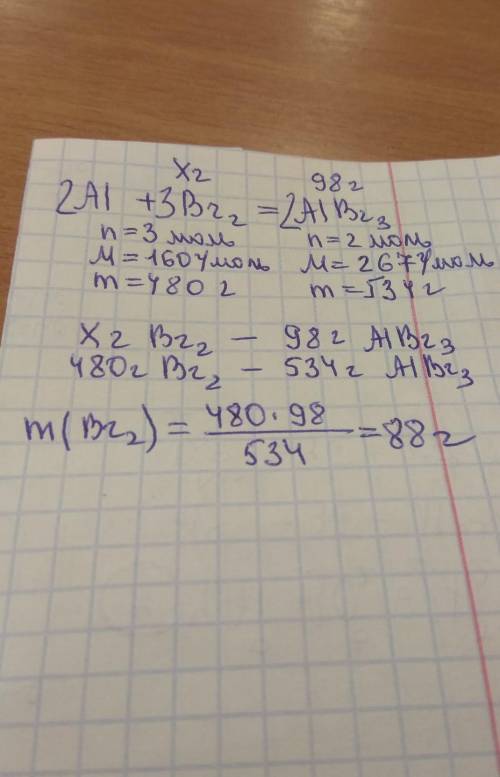 x г 98 г
2Al + 3Br₂ = 2AlBr₃
n = 3 моль n = 2 моль
M = 160 г/моль M = 267 г/моль
m = 480 г m = 534 г
x г Br₂ — 98 г AlBr₃
480 г Br₂ — 534 г AlBr₃
m(Br₂) = 480 · 98 / 534 = 88 г